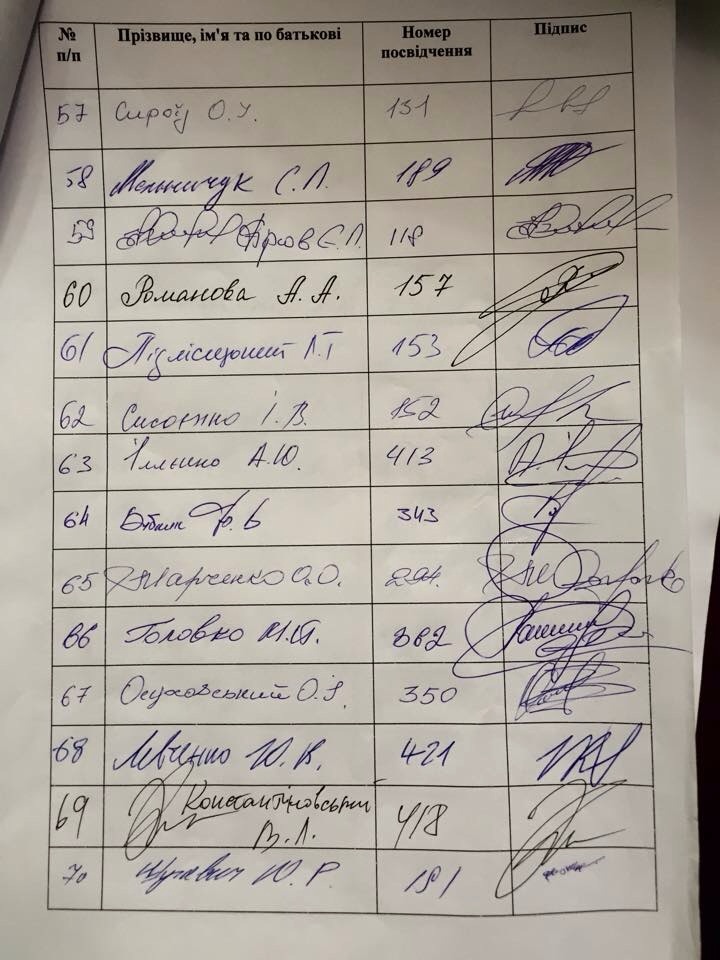 № п/п Прізвище, ім'я та по батькові Номер посвідчення Підпис
57 Сироїд О.І. 131
58 Мельничук С.П. 189
59 118
60 Романова А.А. 157
61 Підлісецький Л.Т 153
62 Сисоєнко І.В. 152
63 Іллєнко А.Ю. 413
64 343
65 Марченко О.О. 294.
66 Головко М.Й. 382
67 Осуховський О.І. 350
68 Левченко Ю.В. 421
69 Константіновський
В.Л. 418
70 Шухевич Ю.Р. 181